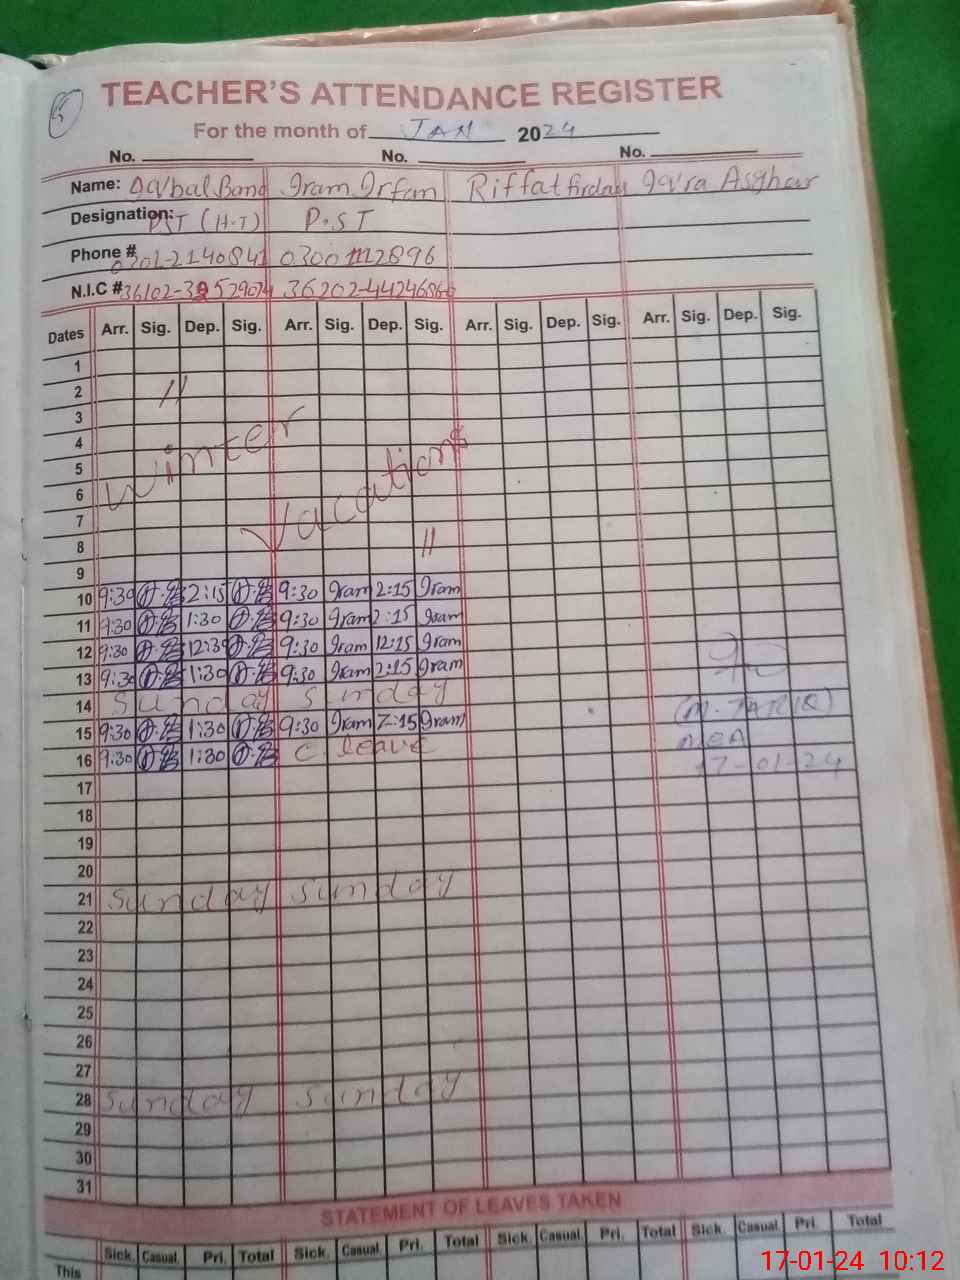 5
TEACHER'S ATTENDANCE REGISTER
For the month of JAN 2024
No. No. No.
Name: Iqbal Bano Iram Irfan Riffat firdous Iqra Asghar
Designation: PST (H.T) P.ST
Phone # 0301-2140841 0300
N.I.C # 36102- 36202-
Dates Arr. Sig. Dep. Sig. Arr. Sig. Dep. Sig. Arr. Sig. Dep. Sig. Arr. Sig. Dep. Sig.
1
2 //
3
4
5 Winter
6
7 Vacations
8 //
9
10 9:30 2:15 9:30 Iram 2:15 Iram
11 9:30 1:30 9:30 Iram 2:15 Iram
12 9:30 12:30 9:30 Iram 12:15 Iram
13 9:30 1:30 9:30 Iram 2:15 Iram
14 Sunday Sunday
(M. TARIQ)
15 9:30 1:30 9:30 Iram 2:15 Iram
MEA
16 9:30 1:30 C. leave
17-01-24
17
18
19
20
21 Sunday Sunday
22
23
24
25
26
27
28 Sunday Sunday
29
30
31
STATEMENT OF LEAVES TAKEN
Sick. Casual. Pri. Total Sick. Casual. Pri. Total Sick. Casual. Pri. Total Sick. Casual. Pri. Total
This
17-01-24 10:12